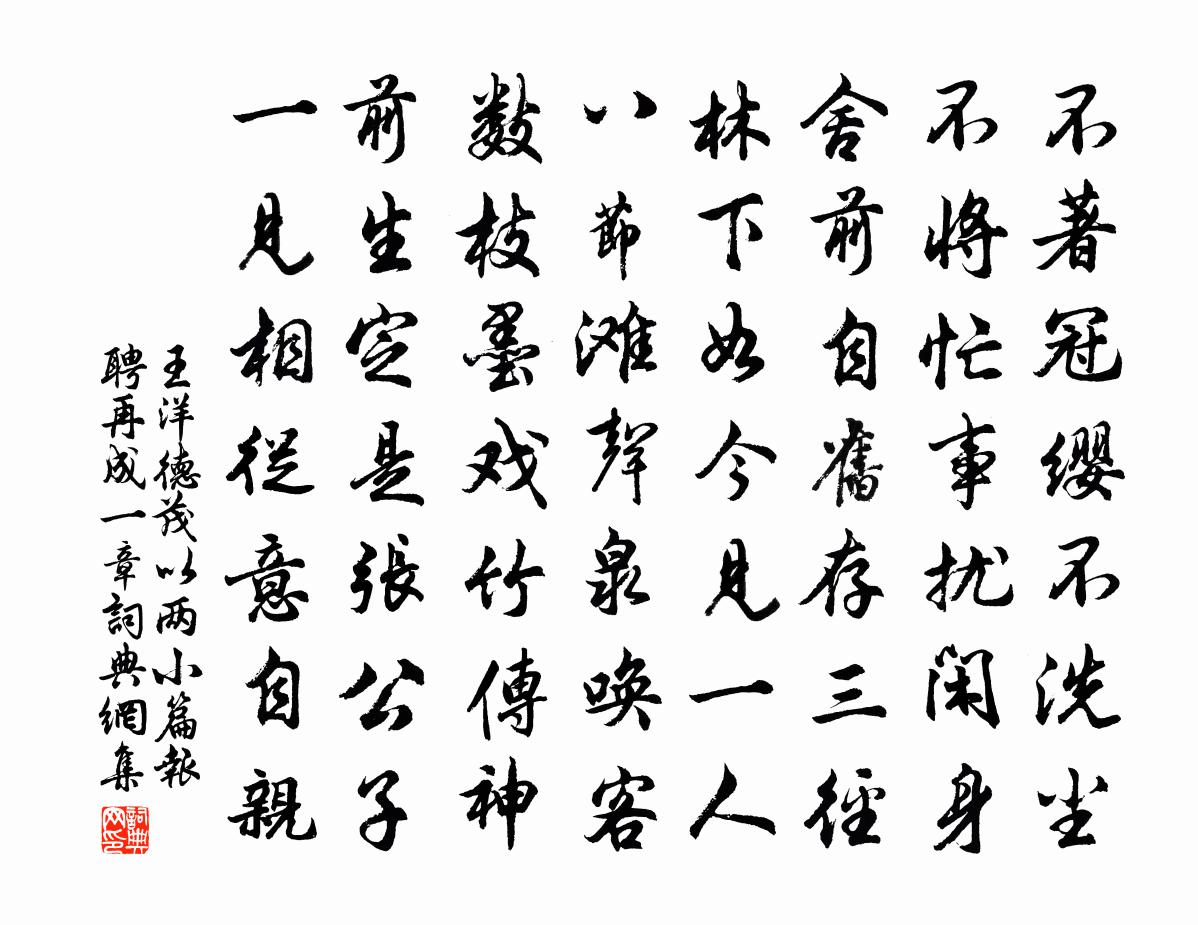 不著冠缨不洗尘
不将忙事扰闲身
舍前自舊存三徑
林下如今見一人
八節滩聲泉唤客
数枝墨戏竹傳神
前生定是張公子
一見相從意自親
王洋德茂以两小篇報
聘再成一章詞典網集
詞典网印